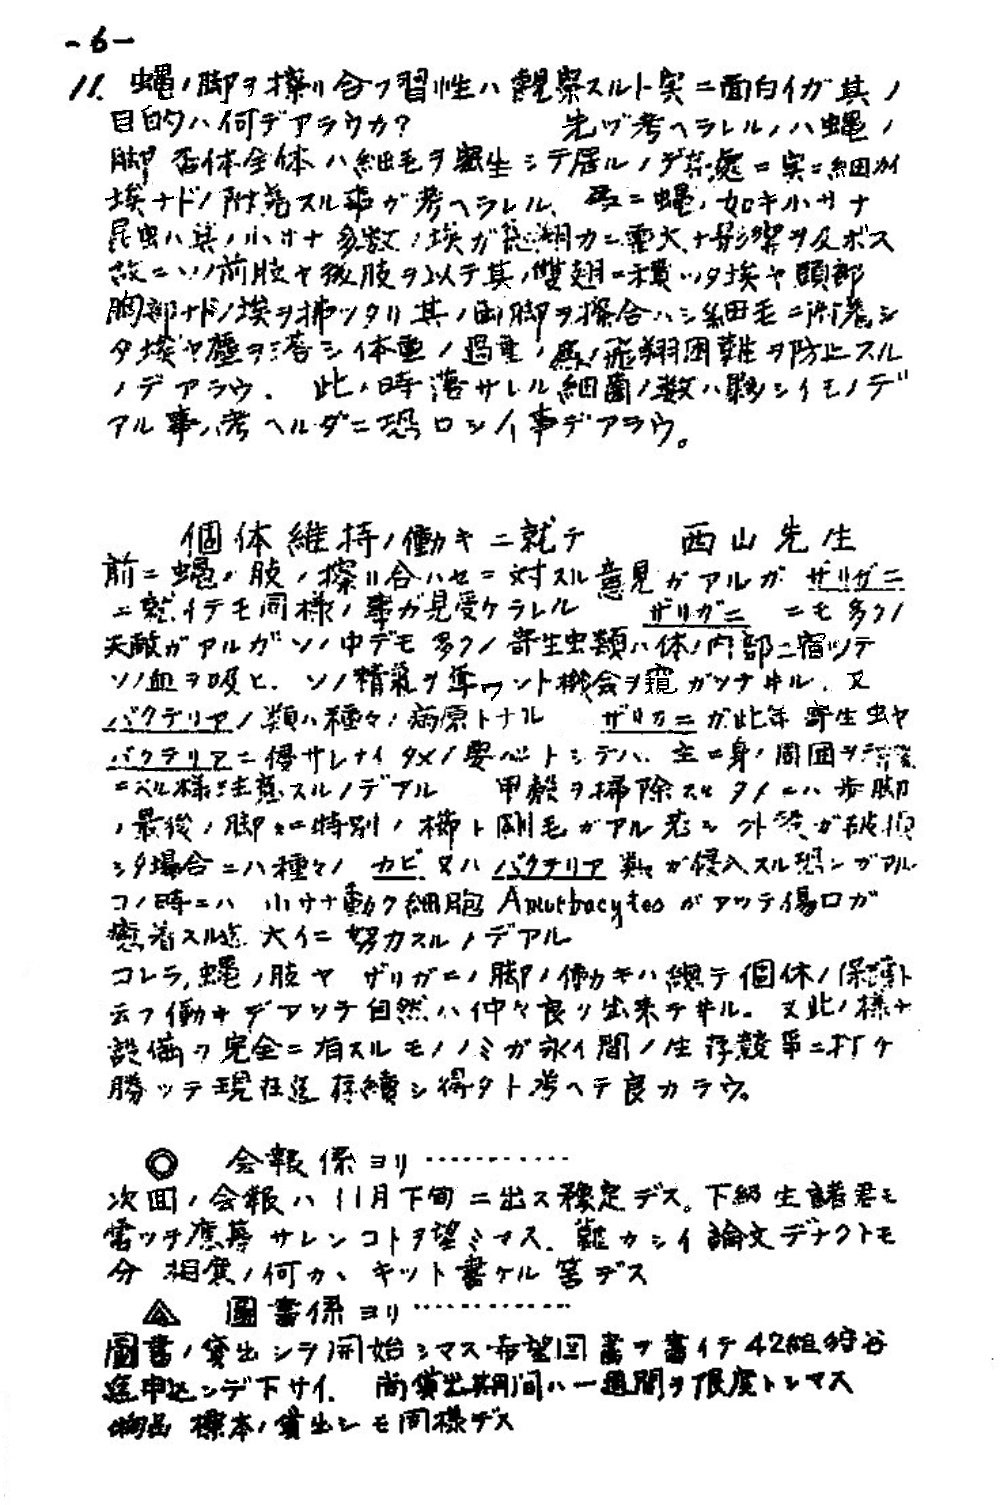 -6-
11. 蝿ノ脚ヲ擦リ合フ習性ハ観察スルト実ニ面白イガ其ノ
目的ハ何デアラウカ? 先ヅ考ヘラレルノハ蝿ノ
脚 否体全体ハ細毛ヲ密生シテ居ルノデ其處ニ実ニ細カイ
埃ナドノ附着スル事ガ考ヘラレル、 故ニ蝿ノ如キ小サナ
昆虫ハ其ノ小サナ多数ノ埃ガ飛翔力ニ重大ナ影響ヲ及ボス
故ニソノ前肢ヤ後肢ヲ以テ其ノ雙翅ニ積ツタ埃ヤ頭部
胸部ナドノ埃ヲ拂ツタリ其ノ両脚ヲ擦合ハシ細毛ニ附着シ
タ埃ヤ塵ヲ落シ体重ノ過重ノ為ノ飛翔困難ヲ防止スル
ノデアラウ. 此ノ時落サレル細菌ノ数ハ夥シイモノデ
アル事ハ考ヘルダニ恐ロシイ事デアラウ。
個体維持ノ働キニ就テ 西山先生
前ニ蝿ノ肢ノ擦リ合ハセニ対スル意見ガアルガ ザリガニ
ニ就イテモ同様ノ事ガ見受ケラレル ザリガニ ニモ多クノ
天敵ガアルガソノ中デモ多クノ寄生虫類ハ体ノ内部ニ宿ツテ
ソノ血ヲ吸ヒ、ソノ精氣ヲ奪ワント機会ヲ窺ガツテヰル、又
バクテリアノ類ハ種々ノ病原トナル ザリガニガ此等寄生虫ヤ
バクテリアニ侵サレナイタメノ要心トシテハ、主ニ身ノ周囲ヲ清潔
ニスル様注意スルノデアル 甲殻ヲ掃除スルタメニハ歩脚
ノ最後ノ脚ニ特別ノ櫛ト剛毛ガアル若シ外殻ガ破損
シタ場合ニハ種々ノ カビ又ハバクテリア 類ガ侵入スル恐レガアル
コノ時ニハ 小サナ動ク細胞 Amoebacytes ガアツテ傷口ガ
癒着スル迄 大イニ努力スルノデアル
コレラ、蝿ノ肢ヤ ザリガニノ脚ノ働キハ總テ個体ノ保護ト
云フ働キデアツテ自然ハ仲々良ク出来テヰル。又此ノ様ナ
設備ヲ完全ニ有スルモノノミガ永イ間ノ生存競争ニ打ケ
勝ッテ現在迄存續シ得タト考ヘテ良カラウ。
◎ 会報係ヨリ…………
次回ノ会報ハ11月下旬ニ出ス予定デス。下級生諸君モ
奮ッテ應募サレンコトヲ望ミマス. 難カシイ論文デナクトモ
分相應ノ何カヽキット書ケル筈デス
△ 圖書係ヨリ…………
圖書ノ貸出シヲ開始シマス希望図書ヲ書イテ42組狩谷
迄申込ンデ下サイ. 尚貸出期間ハ一週間ヲ限度トシマス
物品 標本ノ貸出シモ同様デス